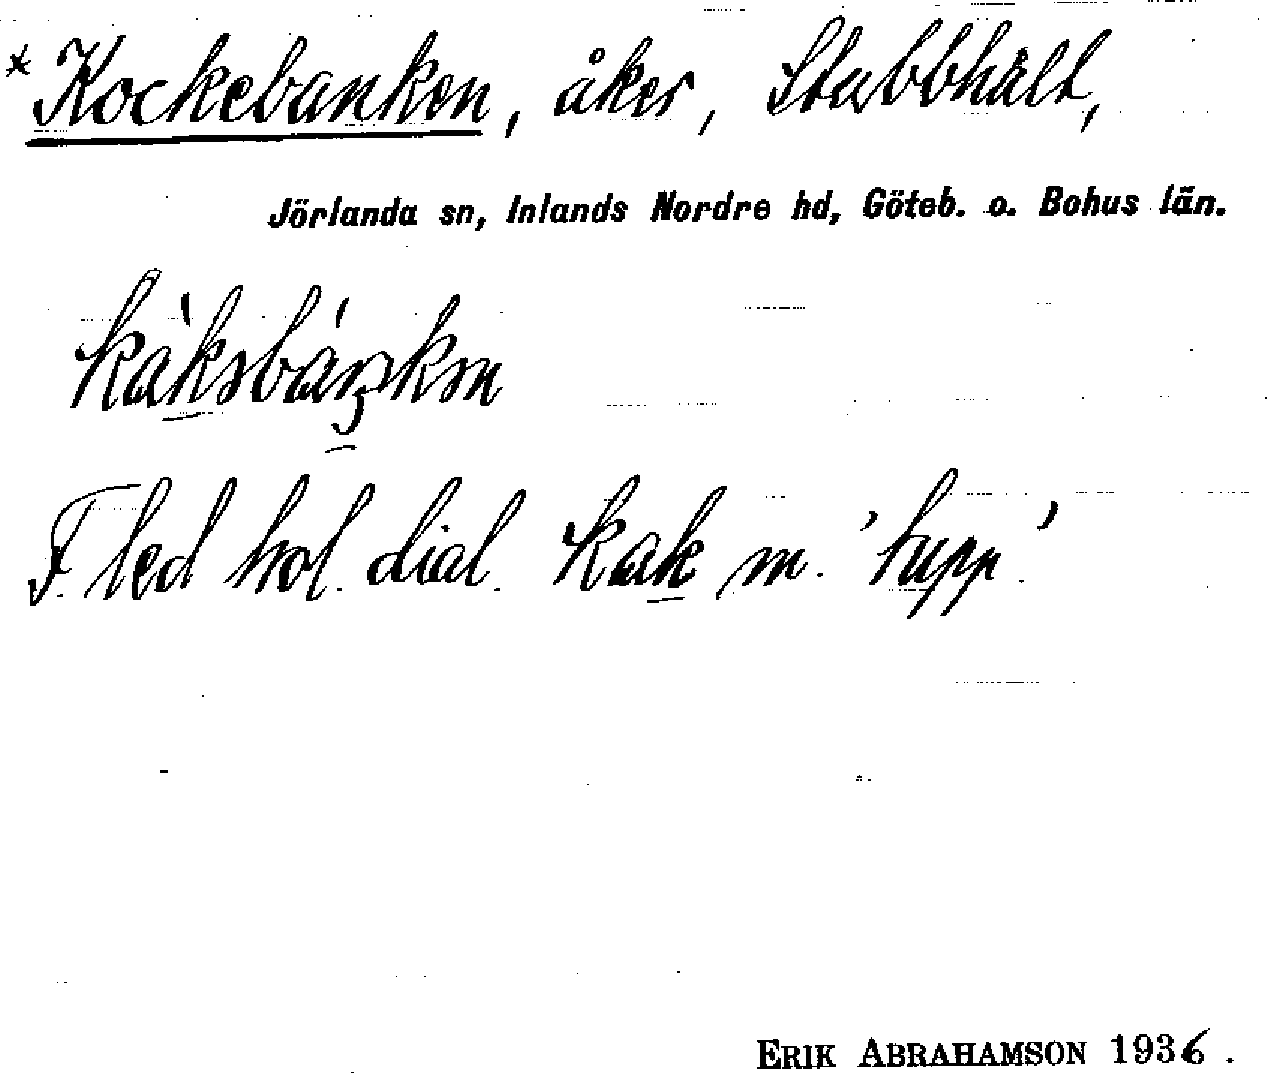 *Kockebanken, åker, Stubbhält,
Jörlanda sn, Inlands Nordre hd, Göteb. o. Bohus län.
F. led trol. dial. kak m. 'tupp.'
ERIK ABRAHAMSON 1936.